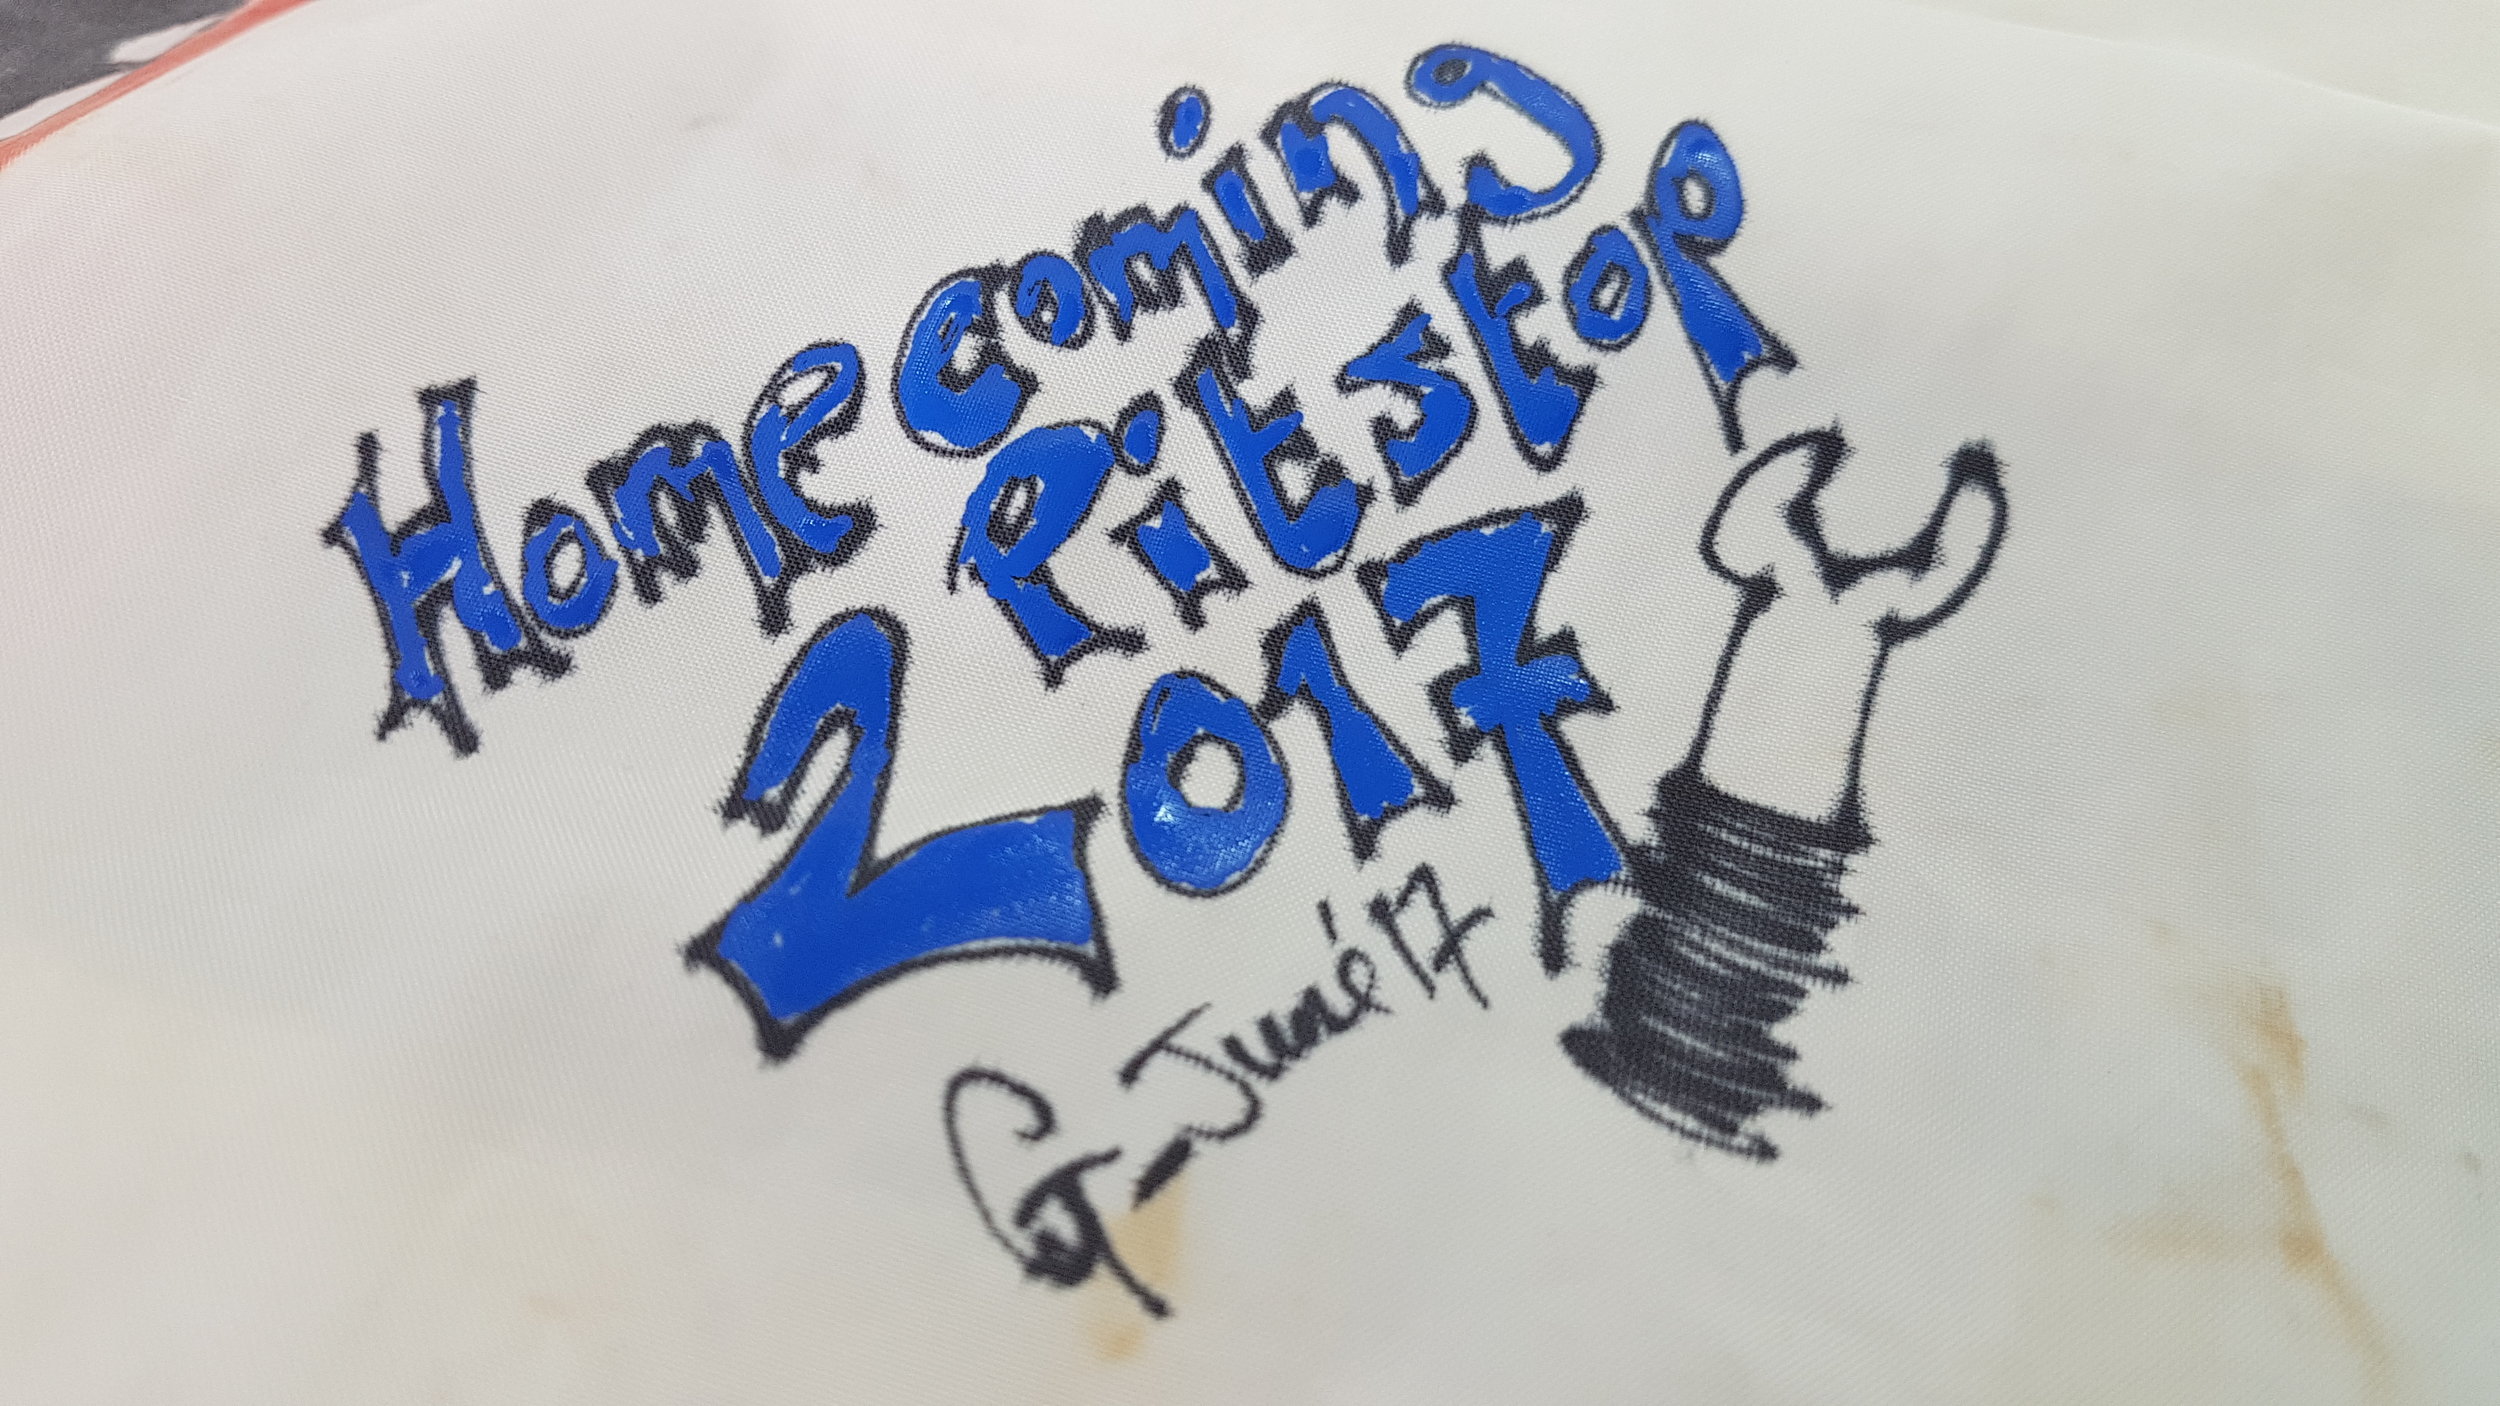 Homecoming
Pitstop
2017
G-June'17